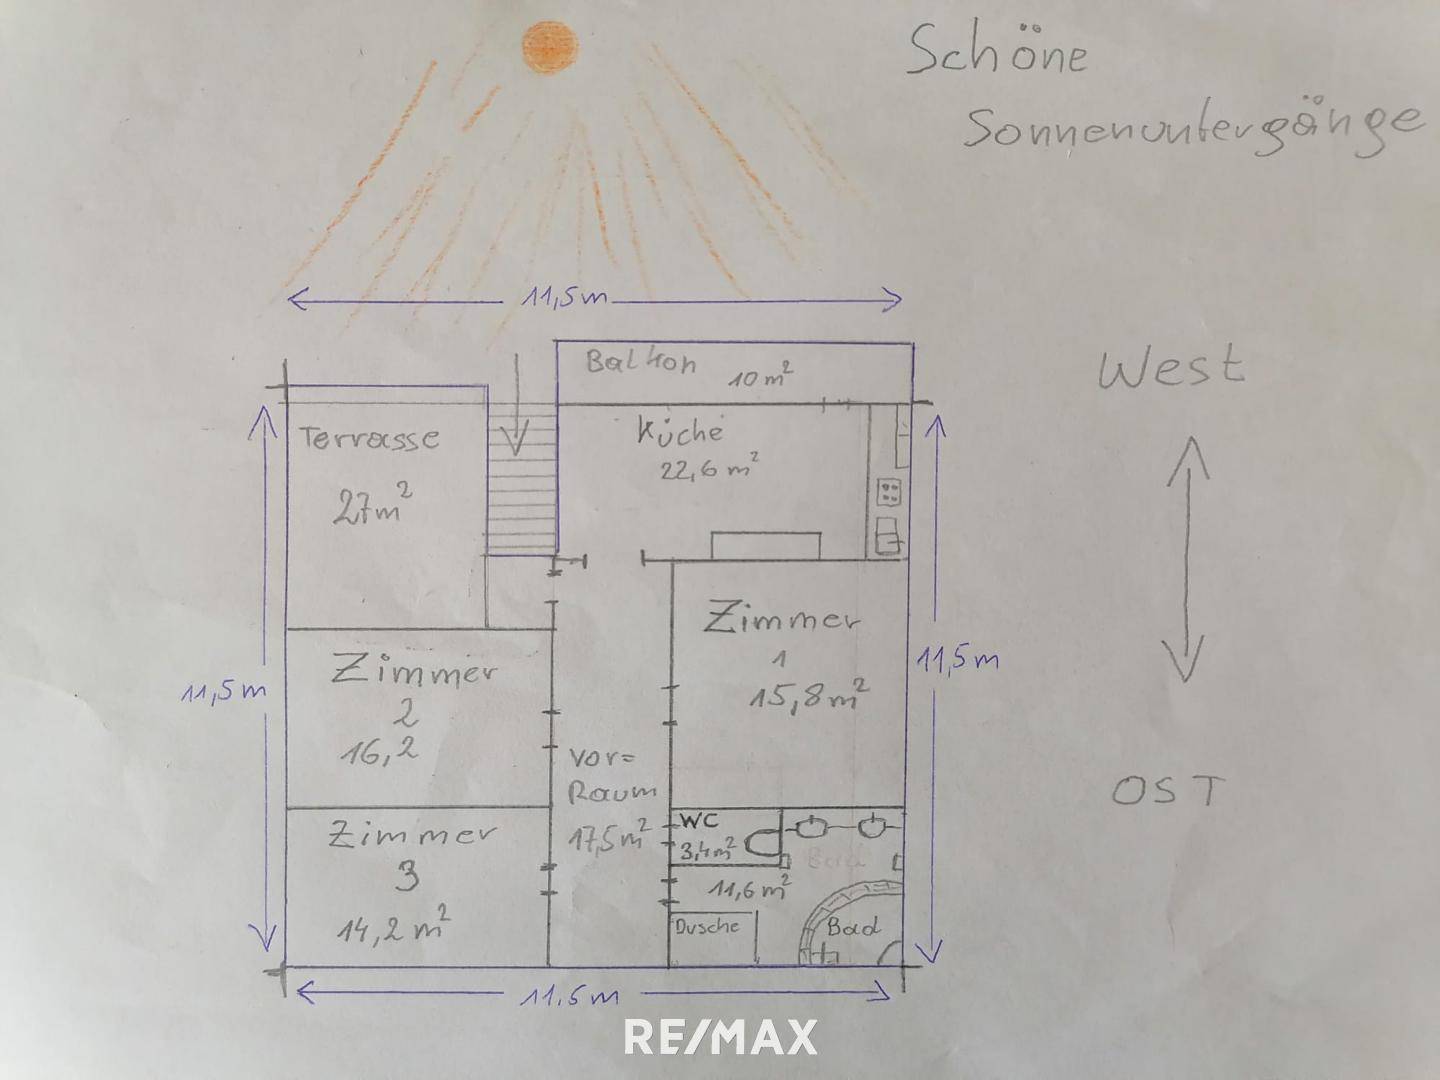 Schöne
Sonnenuntergänge
11,5m
Balkon
10 m²
West
Terrasse
27m²
Küche
22,6 m²
Zimmer
1
15,8m²
11,5m
11,5m
Zimmer
2
16,2
Vor=
Raum
17,5m²
OST
Zimmer
3
14,2 m²
WC
3,4m²
Bad
11,6 m²
Dusche
Bad
11,5m
RE/MAX